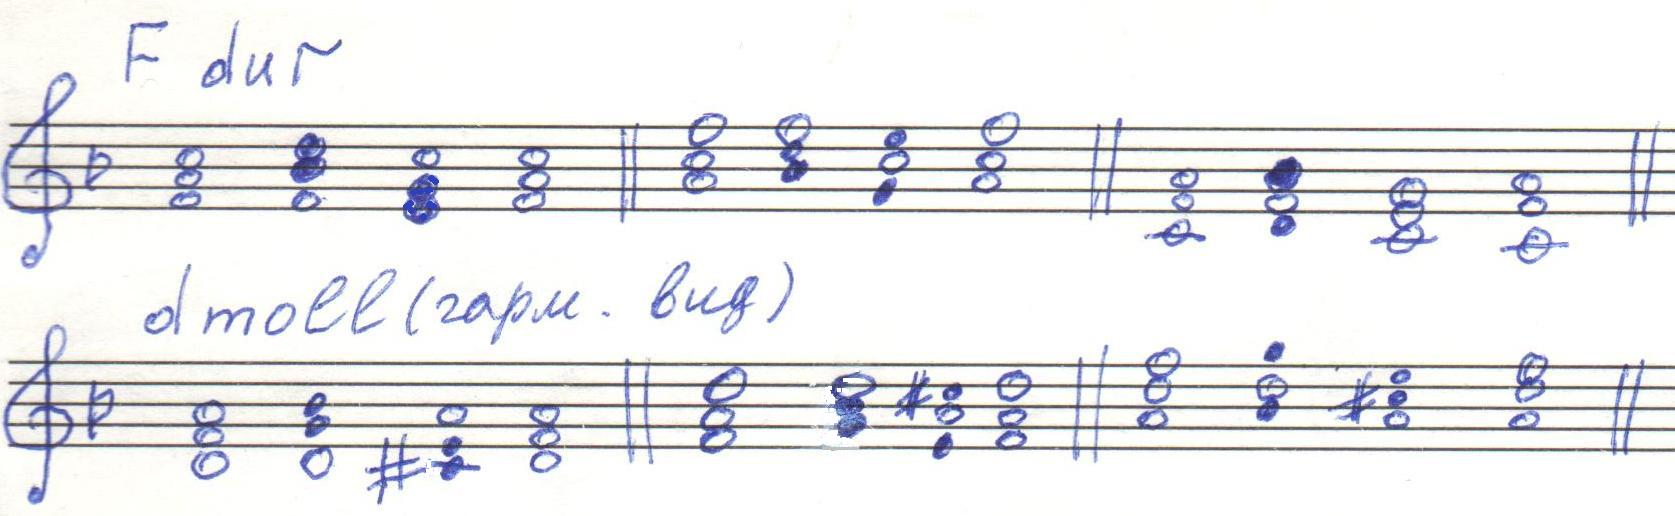 F dur
d moll (гарм. вид)